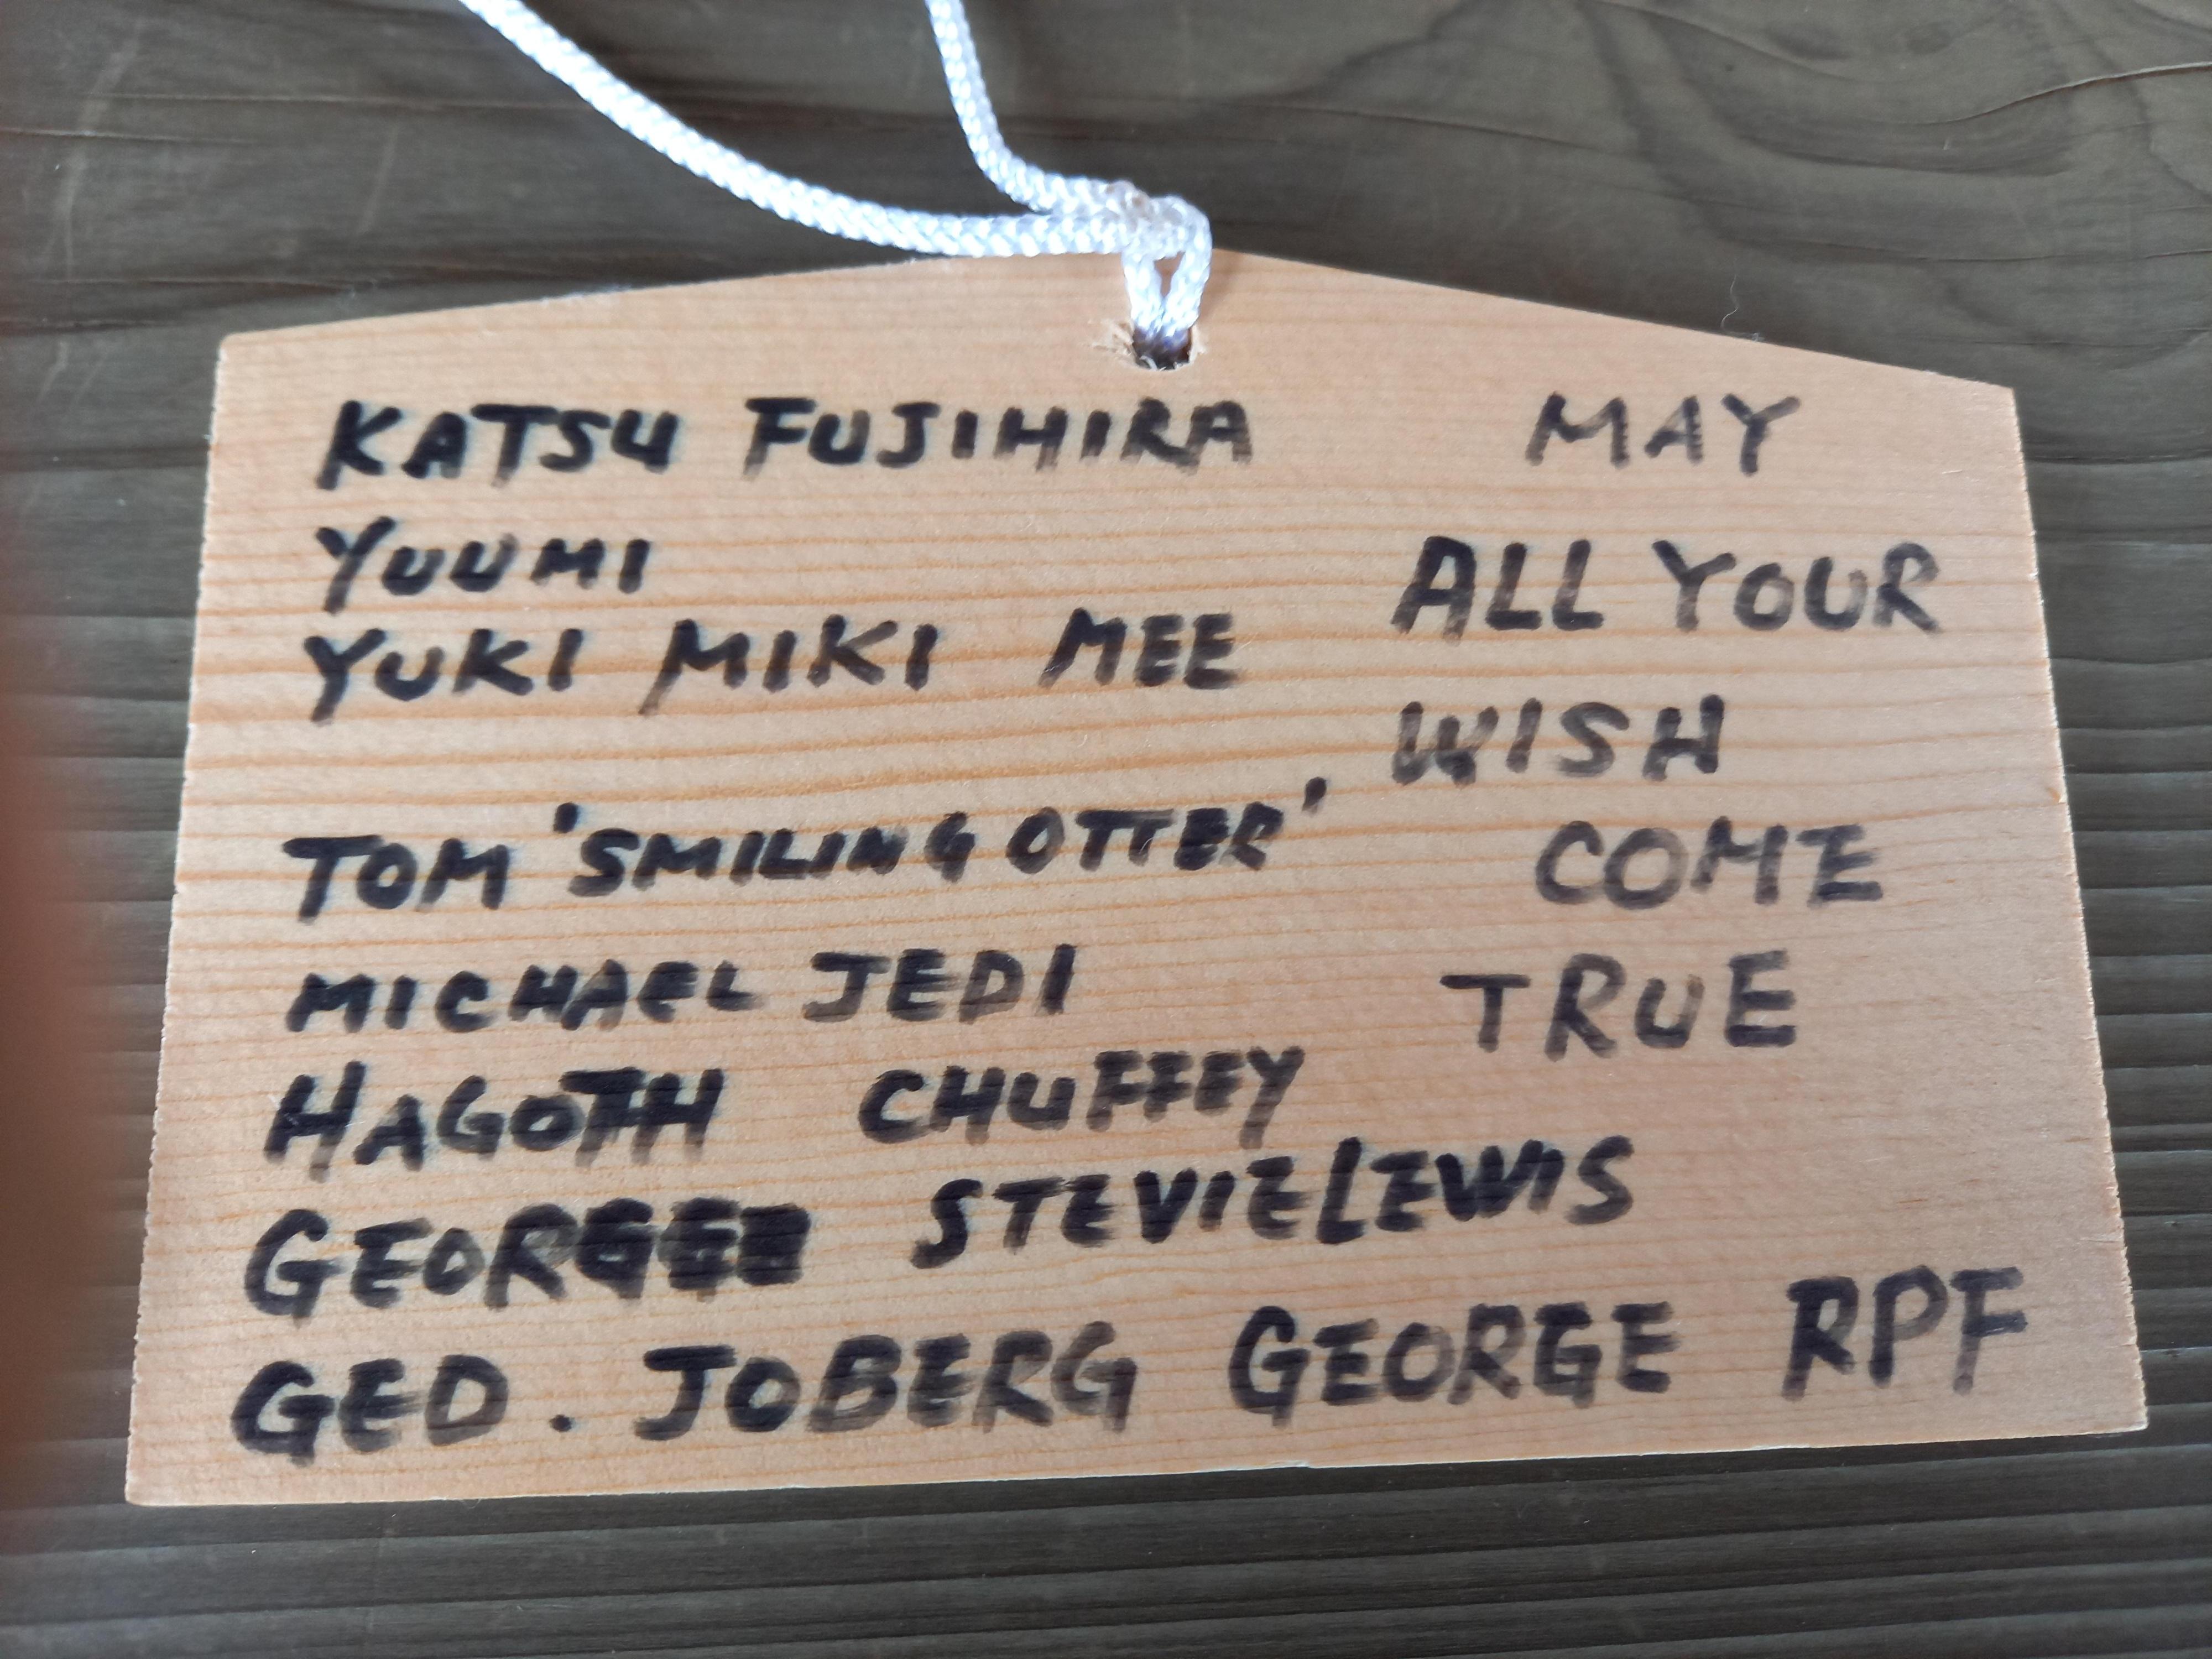 KATSU FUJIHIRA
YUUMI
YUKI MIKI MEE
TOM 'SMILING OTTER'
MICHAEL JEDI
HAGOTH CHUFFEY
STEVIE LEWIS
GED. JOBERG GEORGE RPF
MAY
ALL YOUR
WISH
COME
TRUE